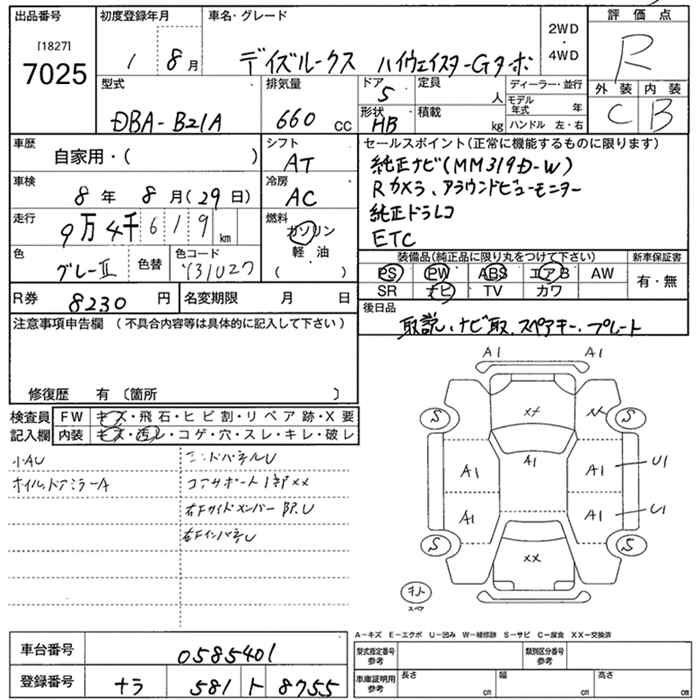 出品番号 初度登録年月 車名・グレード 2WD・4WD 評価点
[1827]
7025 1 8月 デイズルークス ハイウェイスターGターボ R
型式 排気量 ドア 5 定員 人 ディーラー・並行 外装 内装
DBA-B21A 660 cc 形状 HB 積載 kg モデル年式 年 ハンドル 左・右 C B
車歴 シフト セールスポイント(正常に機能するものに限ります)
自家用・( ) AT 純正ナビ(MM319D-W)
車検 冷房 Rカメラ、アラウンドビューモニター
8年 8月(29日) AC 純正ドラレコ
走行 燃料 ETC
9万4千619km ガソリン
軽・油
( )
色 グレーII 色替 色コード 装備品(純正品に限り丸をつけて下さい) 新車保証書
PS PW ABS エアB AW 有・無
SR ナビ TV カワ
R券 8230円 名変期限 月 日 後日品
注意事項申告欄 (不具合内容等は具体的に記入して下さい) 取説、ナビ取、スペアキー、プレート
修復歴 有〔箇所 〕
検査員 FW キズ・飛石・ヒビ割・リペア跡・X要
記入欄 内装 キズ・汚レ・コゲ・穴・スレ・キレ・破レ
小AU エンドパネルU
オイル、ドアミラーA コアサポート1部XX
右Fサイドメンバー BP.U
右FインパネU
A1 A1
S XX S
A1 A1 A1 U1
A1 A1 U1
S XX S
スペア
A-キズ E-エクボ U-凹み W-補修跡 S-サビ C-腐食 XX-交換済
車台番号 0585401 型式指定番号参考 類別区分番号参考
登録番号 ナラ 581 ト 8755 車庫証明用参考 長さ cm 幅 cm 高さ cm